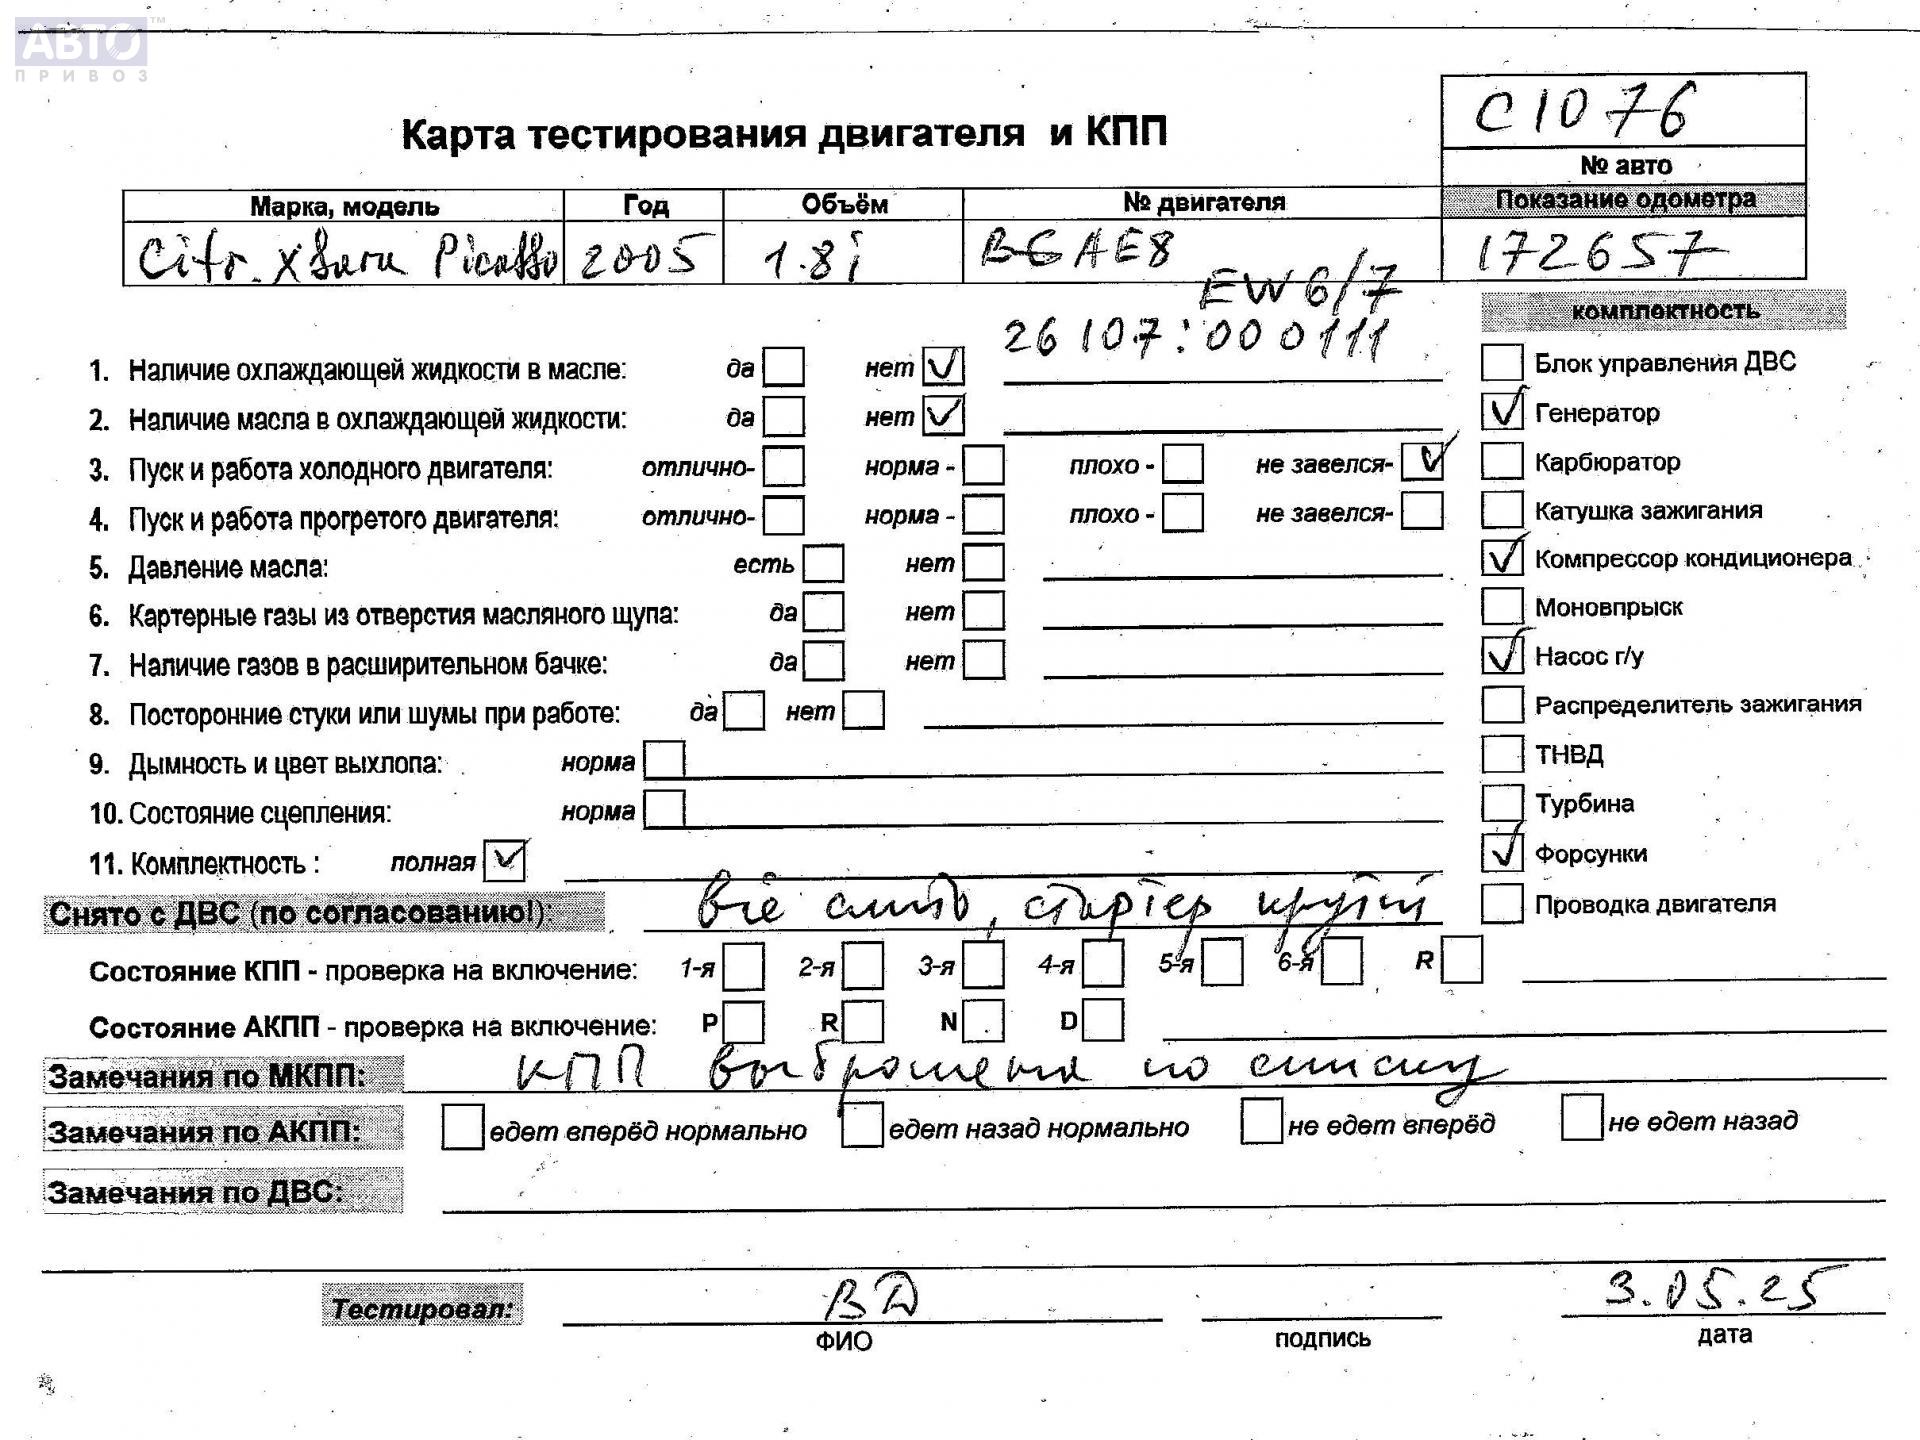 АВТО™
ПРИВОЗ
C1076
Карта тестирования двигателя и КПП
№ авто
Марка, модель Год Объём № двигателя Показание одометра
Citr. Xsara Picasso 2005 1.8i B6AE8 172657
EW6/7
комплектность
26107:000111
1. Наличие охлаждающей жидкости в масле: да нет ✓ Блок управления ДВС
2. Наличие масла в охлаждающей жидкости: да нет ✓ ✓ Генератор
3. Пуск и работа холодного двигателя: отлично- норма - плохо - не завелся- ✓ Карбюратор
4. Пуск и работа прогретого двигателя: отлично- норма - плохо - не завелся- Катушка зажигания
5. Давление масла: есть нет ✓ Компрессор кондиционера
6. Картерные газы из отверстия масляного щупа: да нет Моновпрыск
7. Наличие газов в расширительном бачке: да нет ✓ Насос г/у
8. Посторонние стуки или шумы при работе: да нет Распределитель зажигания
9. Дымность и цвет выхлопа: норма ТНВД
10. Состояние сцепления: норма Турбина
11. Комплектность : полная ✓ ✓ Форсунки
Снято с ДВС (по согласованию!): всё снято, стартер крутит Проводка двигателя
Состояние КПП - проверка на включение: 1-я 2-я 3-я 4-я 5-я 6-я R
Состояние АКПП - проверка на включение: P R N D
Замечания по МКПП: КПП выброшена по списку
Замечания по АКПП: едет вперёд нормально едет назад нормально не едет вперёд не едет назад
Замечания по ДВС:
Тестировал: ВД 3.05.25
ФИО подпись дата